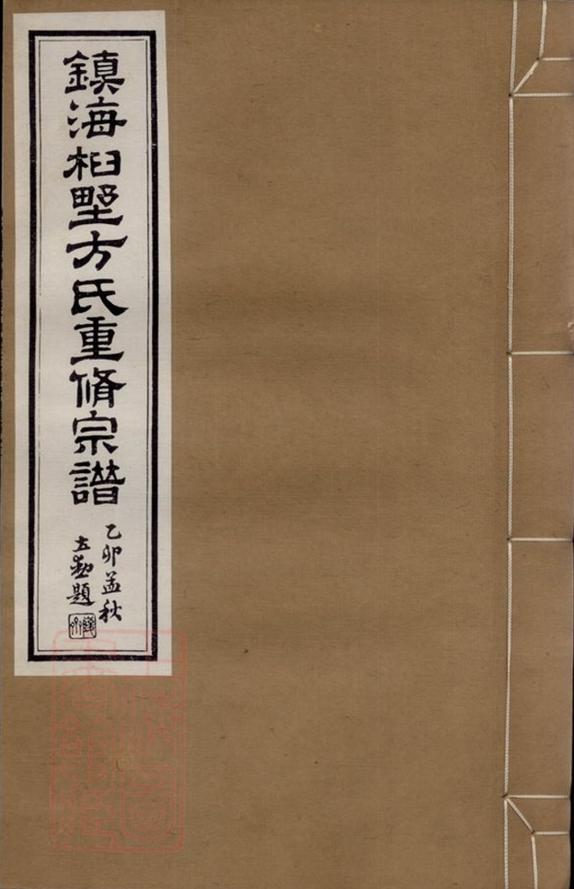 鎮海桕墅方氏重脩宗譜
乙卯孟秋
題